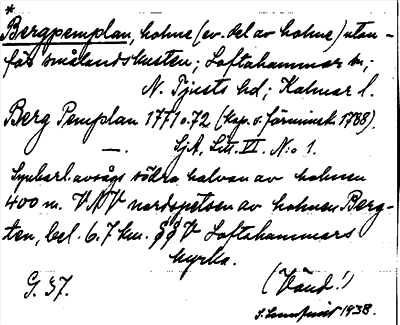 *
Bergpemplan, holme (ev. del av holme) utan-
för smålandskusten; Loftahammar sn;
N. Tjusts hd; Kalmar l.
Berg Pemplan 1771 o. 72 (kop. o. förminsk. 1788).
— Sjk, Litt. VI. N:o 1.
Synbarl. avsågs södra halvan av holmen
400 m. VNV nordspetsen av holmen Berg-
ten, bel. 6.7 km. SSV Loftahammars
kyrka.
G. 37. (Vänd!)
1938.